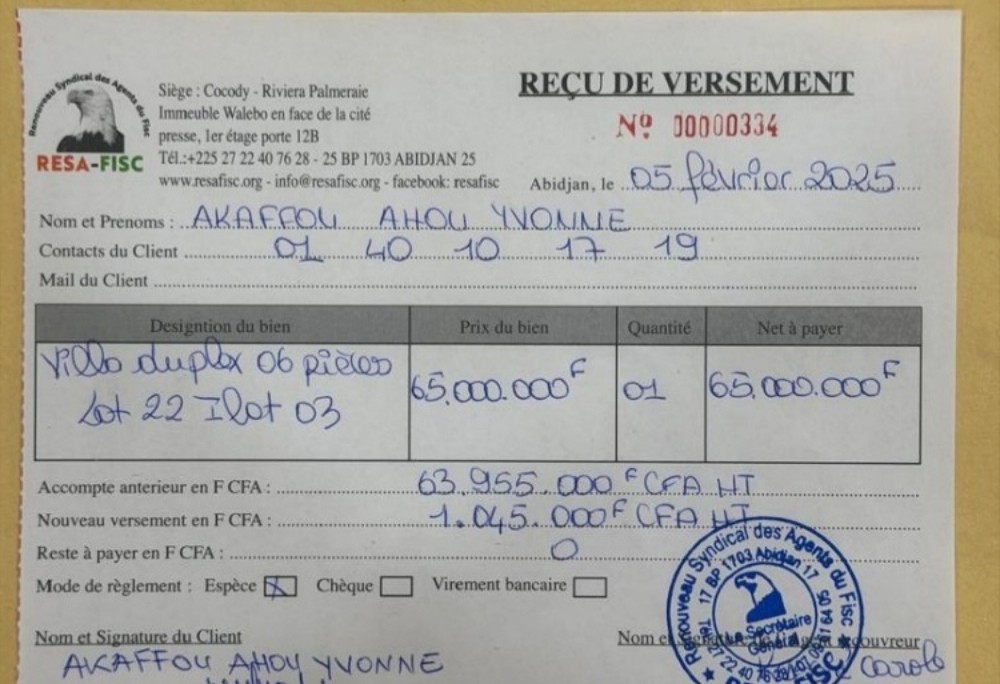 Renouveau Syndical des Agents du Fisc
RESA-FISC
Siège : Cocody - Riviera Palmeraie
Immeuble Walebo en face de la cité
presse, 1er étage porte 12B
Tél.:+225 27 22 40 76 28 - 25 BP 1703 ABIDJAN 25
www.resafisc.org - info@resafisc.org - facebook: resafisc
REÇU DE VERSEMENT
Nº 00000334
Abidjan, le 05 février 2025
Nom et Prenoms : AKAFFOU AHOU YVONNE
Contacts du Client 01 40 10 17 19
Mail du Client
Designtion du bien Prix du bien Quantité Net à payer
Villa duplex 06 pièces 65.000.000 F 01 65.000.000 F
Lot 22 Ilot 03
Accompte anterieur en F CFA : 63.955.000 F CFA HT
Nouveau versement en F CFA : 1.045.000 F CFA HT
Reste à payer en F CFA : 0
Mode de règlement : Espèce X Chèque Virement bancaire
Nom et Signature du Client
AKAFFOU AHOU YVONNE
Nom et Signature de l'Agent recouvreur
Carole
Renouveau Syndical des Agents du Fisc
17 BP 1703 Abidjan 17
Le Secrétaire
Général